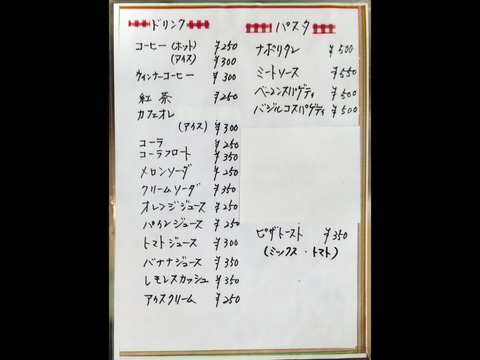 ドリンク
コーヒー (ホット) ¥250
(アイス) ¥300
ウィンナーコーヒー ¥300
紅茶 ¥250
カフェオレ
(アイス) ¥300
コーラ ¥250
コーラフロート ¥350
メロンソーダ ¥250
クリームソーダ ¥350
オレンジジュース ¥250
パインジュース ¥250
トマトジュース ¥300
バナナジュース ¥350
レモンスカッシュ ¥350
アイスクリーム ¥250
パスタ
ナポリタン ¥500
ミートソース ¥550
ベーコンスパゲティ ¥500
バジルコスパゲティ ¥500
ピザトースト ¥350
(ミックス・トマト)